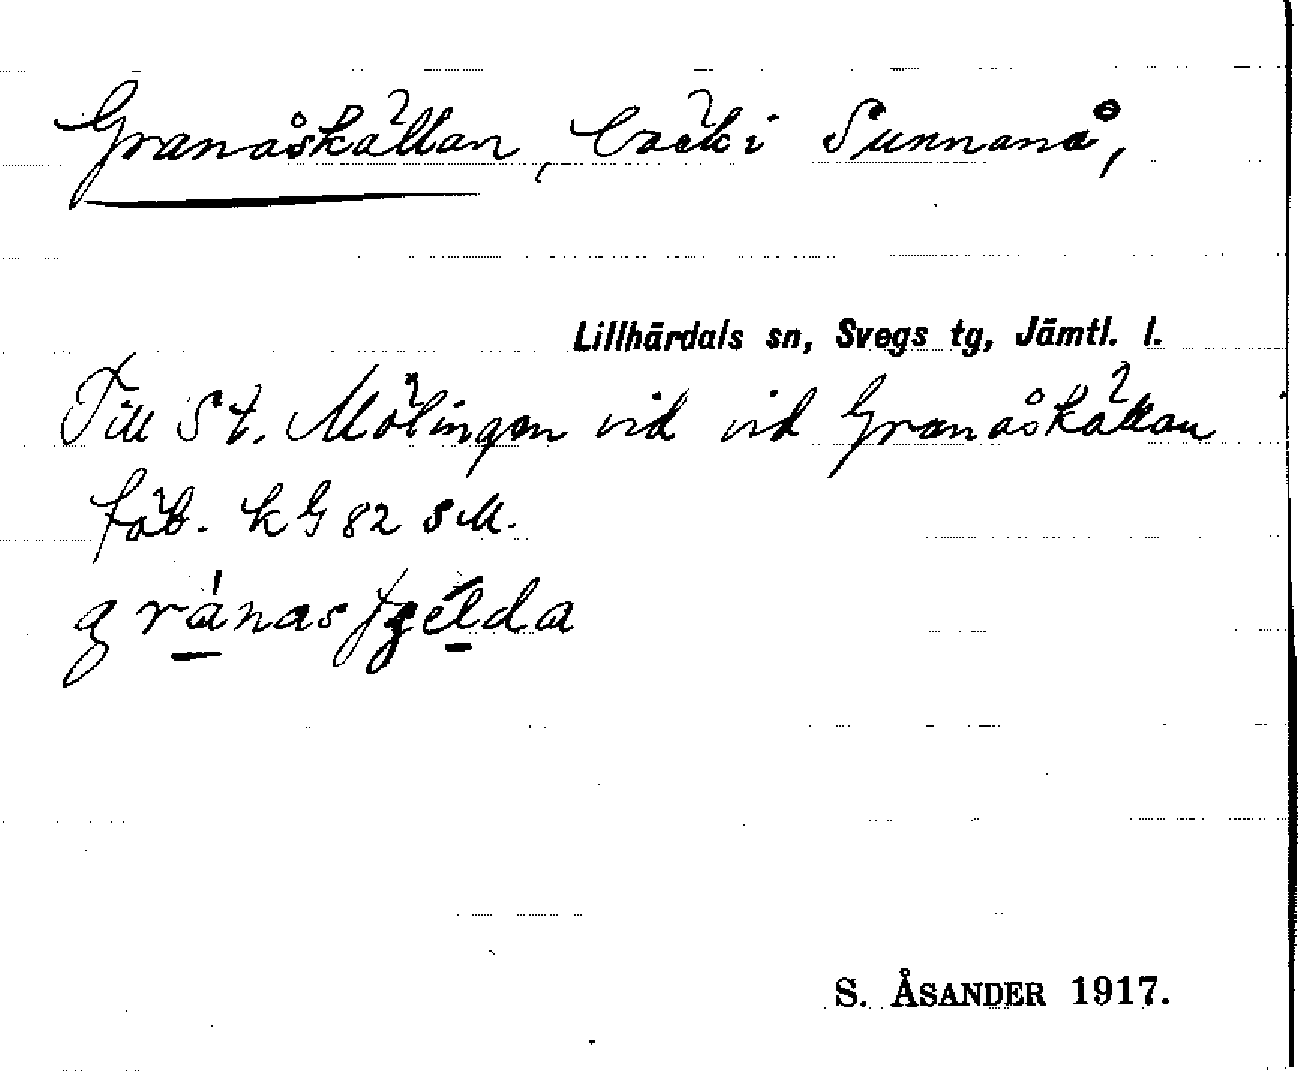 Granåskällan, bäck i Sunnanå,
Lillhärdals sn, Svegs tg, Jämtl. l.
Till St. Mölingen vid vid Granåskällan
fäb. k G 82 s M.
gránasſgélda
S. ÅSANDER 1917.